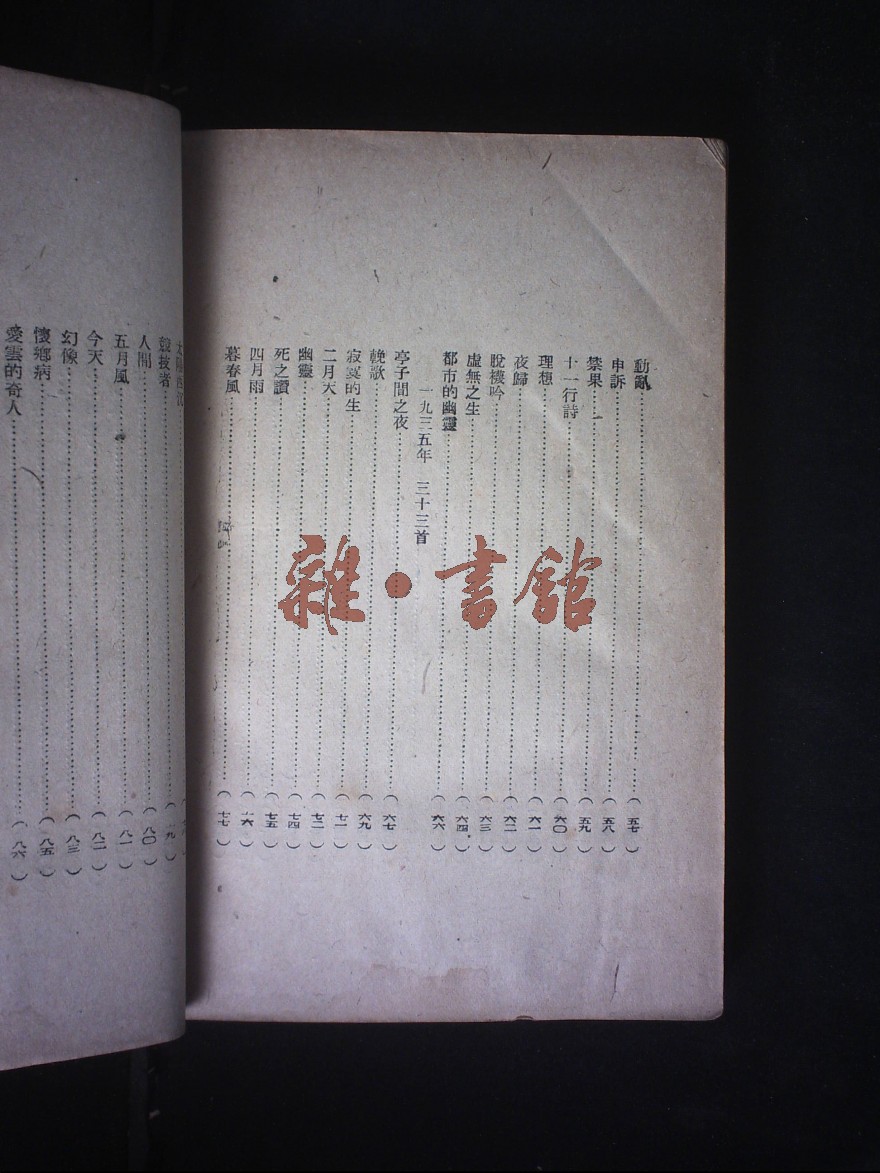 動亂……(五七)
申訴……(五八)
禁果……(五九)
十一行詩……(六〇)
理想……(六一)
夜歸……(六二)
脫襪吟……(六三)
虛無之生……(六四)
都市的幽靈……(六六)
一九三五年 三十三首
亭子間之夜……(六七)
輓歌……(六九)
寂寞的生……(七一)
二月天……(七二)
幽靈……(七四)
死之讚……(七五)
四月雨……(七六)
暮春風……(七七)
競技者……
人間……(八〇)
五月風……(八一)
今天……(八二)
幻像……(八三)
懷鄉病……(八五)
愛雲的奇人……(八六)
雜·書館